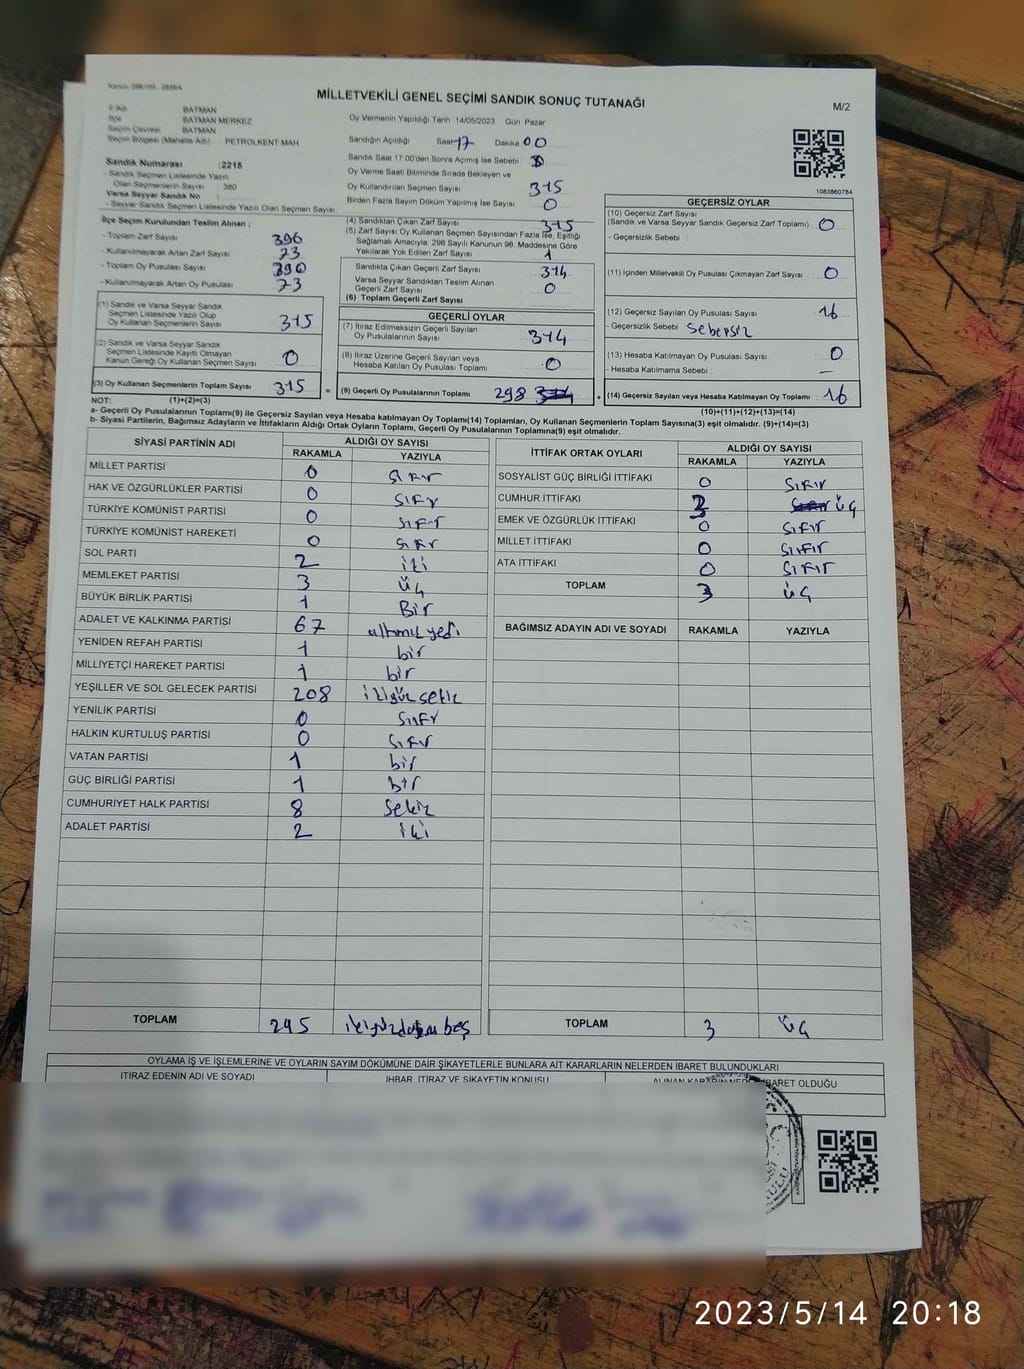 MİLLETVEKİLİ GENEL SEÇİMİ SANDIK SONUÇ TUTANAĞI
M/2
İl Adı : BATMAN
İlçe : BATMAN MERKEZ
Seçim Çevresi : BATMAN
Seçim Bölgesi (Mahalle Adı) : PETROLKENT MAH
Sandık Numarası : 2215
- Sandık Seçmen Listesinde Yazılı
Olan Seçmenlerin Sayısı : 380
Varsa Seyyar Sandık No :
- Seyyar Sandık Seçmen Listesinde Yazılı Olan Seçmen Sayısı:
Oy Vermenin Yapıldığı Tarih :14/05/2023 Gün Pazar
Sandığın Açıldığı Saat 17 Dakika 00
Sandık Saat 17:00'den Sonra Açımış İse Sebebi :
Oy Verme Saati Bitiminde Sırada Bekleyen ve
Oy Kullandırılan Seçmen Sayısı 315
Birden Fazla Sayım Döküm Yapılmış İse Sayısı : 0
1083860784
İlçe Seçim Kurulundan Teslim Alınan ;
- Toplam Zarf Sayısı 396
- Kullanılmayarak Artan Zarf Sayısı 23
- Toplam Oy Pusulası Sayısı 390
- Kullanılmayarak Artan Oy Pusulası 23
(1) Sandık ve Varsa Seyyar Sandık
Seçmen Listesinde Yazılı Olup
Oy Kullanan Seçmenlerin Sayısı 315
(2) Sandık ve Varsa Seyyar Sandık
Seçmen Listesinde Kayıtlı Olmayan
Kanun Gereği Oy Kullanan Seçmen Sayısı 0
(3) Oy Kullanan Seçmenlerin Toplam Sayısı 315
(4) Sandıktan Çıkan Zarf Sayısı 315
(5) Zarf Sayısı Oy Kullanan Seçmen Sayısından Fazla İse, Eşitliği
Sağlamak Amacıyla, 298 Sayılı Kanunun 98. Maddesine Göre
Yakılarak Yok Edilen Zarf Sayısı 1
Sandıkta Çıkan Geçerli Zarf Sayısı 314
Varsa Seyyar Sandıktan Teslim Alınan
Geçerli Zarf Sayısı 0
(6) Toplam Geçerli Zarf Sayısı
GEÇERLİ OYLAR
(7) İtiraz Edilmeksizin Geçerli Sayılan
Oy Pusulalarının Sayısı 314
(8) İtiraz Üzerine Geçerli Sayılan veya
Hesaba Katılan Oy Pusulası Toplamı 0
= (9) Geçerli Oy Pusulalarının Toplamı 298 314
GEÇERSİZ OYLAR
(10) Geçersiz Zarf Sayısı
(Sandık ve Varsa Seyyar Sandık Geçersiz Zarf Toplamı) 0
- Geçersizlik Sebebi :
(11) İçinden Milletvekili Oy Pusulası Çıkmayan Zarf Sayısı : 0
(12) Geçersiz Sayılan Oy Pusulası Sayısı : 16
- Geçersizlik Sebebi : Sebepsiz
(13) Hesaba Katılmayan Oy Pusulası Sayısı : 0
- Hesaba Katılmama Sebebi : —
+ (14) Geçersiz Sayılan veya Hesaba Katılmayan Oy Toplamı : 16
NOT: (1)+(2)=(3)
(10)+(11)+(12)+(13)=(14)
a- Geçerli Oy Pusulalarının Toplamı(9) ile Geçersiz Sayılan veya Hesaba katılmayan Oy Toplamı(14) Toplamları, Oy Kullanan Seçmenlerin Toplam Sayısına(3) eşit olmalıdır. (9)+(14)=(3)
b- Siyasi Partilerin, Bağımsız Adayların ve İttifakların Aldığı Ortak Oyların Toplamı, Geçerli Oy Pusulalarının Toplamına(9) eşit olmalıdır.
SİYASİ PARTİNİN ADI ALDIĞI OY SAYISI
RAKAMLA YAZIYLA
MİLLET PARTİSİ 0 sıfır
HAK VE ÖZGÜRLÜKLER PARTİSİ 0 sıfır
TÜRKİYE KOMÜNİST PARTİSİ 0 sıfır
TÜRKİYE KOMÜNİST HAREKETİ 0 sıfır
SOL PARTİ 2 iki
MEMLEKET PARTİSİ 3 üç
BÜYÜK BİRLİK PARTİSİ 1 Bir
ADALET VE KALKINMA PARTİSİ 67 altmış yedi
YENİDEN REFAH PARTİSİ 1 bir
MİLLİYETÇİ HAREKET PARTİSİ 1 bir
YEŞİLLER VE SOL GELECEK PARTİSİ 208 ikiyüz sekiz
YENİLİK PARTİSİ 0 sıfır
HALKIN KURTULUŞ PARTİSİ 0 sıfır
VATAN PARTİSİ 1 bir
GÜÇ BİRLİĞİ PARTİSİ 1 bir
CUMHURİYET HALK PARTİSİ 8 sekiz
ADALET PARTİSİ 2 iki
TOPLAM 295 ikiyüzdoksan beş
İTTİFAK ORTAK OYLARI ALDIĞI OY SAYISI
RAKAMLA YAZIYLA
SOSYALİST GÜÇ BİRLİĞİ İTTİFAKI 0 sıfır
CUMHUR İTTİFAKI 3 üç
EMEK VE ÖZGÜRLÜK İTTİFAKI 0 sıfır
MİLLET İTTİFAKI 0 sıfır
ATA İTTİFAKI 0 sıfır
TOPLAM 3 üç
BAĞIMSIZ ADAYIN ADI VE SOYADI RAKAMLA YAZIYLA
TOPLAM 3 üç
OYLAMA İŞ VE İŞLEMLERİNE VE OYLARIN SAYIM DÖKÜMÜNE DAİR ŞİKAYETLERLE BUNLARA AİT KARARLARIN NELERDEN İBARET BULUNDUKLARI
İTİRAZ EDENİN ADI VE SOYADI İHBAR, İTİRAZ VE ŞİKAYETİN KONUSU ALINAN KARARIN NEDEN İBARET OLDUĞU
2023/5/14 20:18